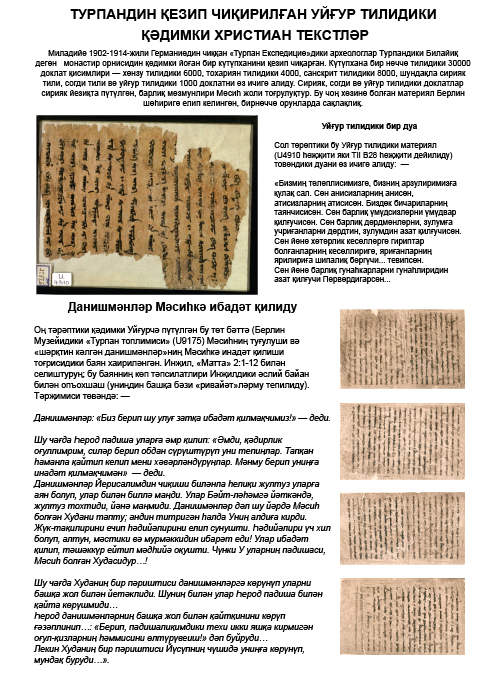 ТУРПАНДИН ҚЕЗИП ЧИҚИРИЛҒАН УЙҒУР ТИЛИДИКИ
ҚӘДИМКИ ХРИСТИАН ТЕКСТЛӘР
Миладийә 1902-1914-жили Германиедин чиққан «Турпан Експедицие»дики археологлар Турпандики Билайиқ
деген монастир орнисидин қедимки йоған бир кутүпханини қезип чиқарған. Кутүпхана бир нәччә тилдики 30000
доклат қисимлири — хәнзу тилидики 6000, тохариян тилидики 4000, санскрит тилидики 8000, шундақла сирияк
тили, согди тили вә уйғур тилидики 1000 доклатни өз ичигә алиду. Сирияк, согди вә уйғур тилидики доклатлар
сирияк йезиқта пүтүлгән, барлиқ мәзмунлири Мәсиһ жоли тоғрулуқтур. Бу чоң хәзинә болған материял Берлин
шәһиригә елип келинген, бирнәччә орунларда сақлақлиқ.
Уйғур тилидики бир дуа
Сол тәрәптики бу Уйғур тилидики материял
(U4910 һөҗҗити яки TII B28 һөҗҗити дейилиду)
төвәндики дуани өз ичигә алиду: —
«Бизниң тәләплисимизгә, бизниң арзулиримизға
қулақ сал. Сән анисизларниң аниси,
атисизларниң атисисән. Биздәк бичариларниң
таянчисисән. Сән барлиқ үмүдсизләрни үмүдвар
қилғучисән. Сән барлиқ дәрдмәнләрни, зулумға
учриғанларни дәрдтин, зулумдин азат қилғучисән.
Сән йәнә хәтәрлик кесәлләргә гириптар
болғанларниң кесәллиригә, яриғанларниң
ярилириға шипалиқ бәргүчи... тевипсән.
Сән йәнә барлиқ гунаһкарларни гунаһлиридин
азат қилғучи Пәрвәрдигарсән...
Данишмәнләр Мәсиһкә ибадәт қилиду
Оң тәрәптики қәдимки Уйғурчә пүтүлгән бу төт бәттә (Берлин
Музейидики «Турпан топлимиси» (U9175) Мәсиһниң туғулуши вә
«шәрқтин кәлгән данишмәнләр»ниң Мәсиһкә инадәт қилиши
тоғрисидики баян хаириләнгән. Инҗил, «Матта» 2:1-12 билән
селиштуруң; бу баянниң көп тәпсилатлири Инҗилдики әслий байан
билән опъохшаш (униңдин башқа бәзи «ривайәт»ләрму тепилиду).
Тәрҗимиси төвәндә: —
Данишмәнләр: «Биз берип шу улуғ затқа ибадәт қилмақчимиз!» — деди.
Шу чағда Һерод падиша уларға әмр қилип: «Әмди, қәдирлик
оғуллирим, силәр берип обдан сүрүштүрүп уни тепиңлар. Тапқан
һаманла қайтип келип мени хәвәрләндүрүңлар. Мәнму берип униңға
инадәт қилмақчимән» — деди.
Данишмәнләр Йерисалимдин чиқиши биләнла һелиқи жултуз уларға
аян болуп, улар билән биллә маңди. Улар Бәйт-ләһәмгә йәткәндә,
жултуз тохтиди, йәнә маңмиди. Данишмәнләр дәл шу йәрдә Мәсиһ
болған Худани тапту; андин титригән һалда Униң алдиға кирди.
Жүк-тақилирини ечип һәдийәлирини елип сунушти. Һәдийәлири үч хил
болуп, алтун, мәстики вә мурмәккидин ибарәт еди! Улар ибадәт
қилип, тәшәккүр ейтип мәдһийә оқушти. Чүнки У уларниң падишаси,
Мәсиһ болған Худасидур…!
Шу чағда Худаниң бир пәриштиси данишмәнләргә көрүнүп уларни
башқа жол билән йетәклиди. Шуниң билән улар Һерод падиша билән
қайта көрүшмиди…
Һерод данишмәнләрниң башқа жол билән қайтқинини көрүп
ғәзәплинип…: «Берип, падишалиқимдики техи икки яшқа кирмигән
оғул-қизларниң һәммисини өлтүрүвеш!» дәп буйруди…
Лекин Худаниң бир пәриштиси Йүсүпниң чүшидә униңға көрүнүп,
мундақ буруди…».